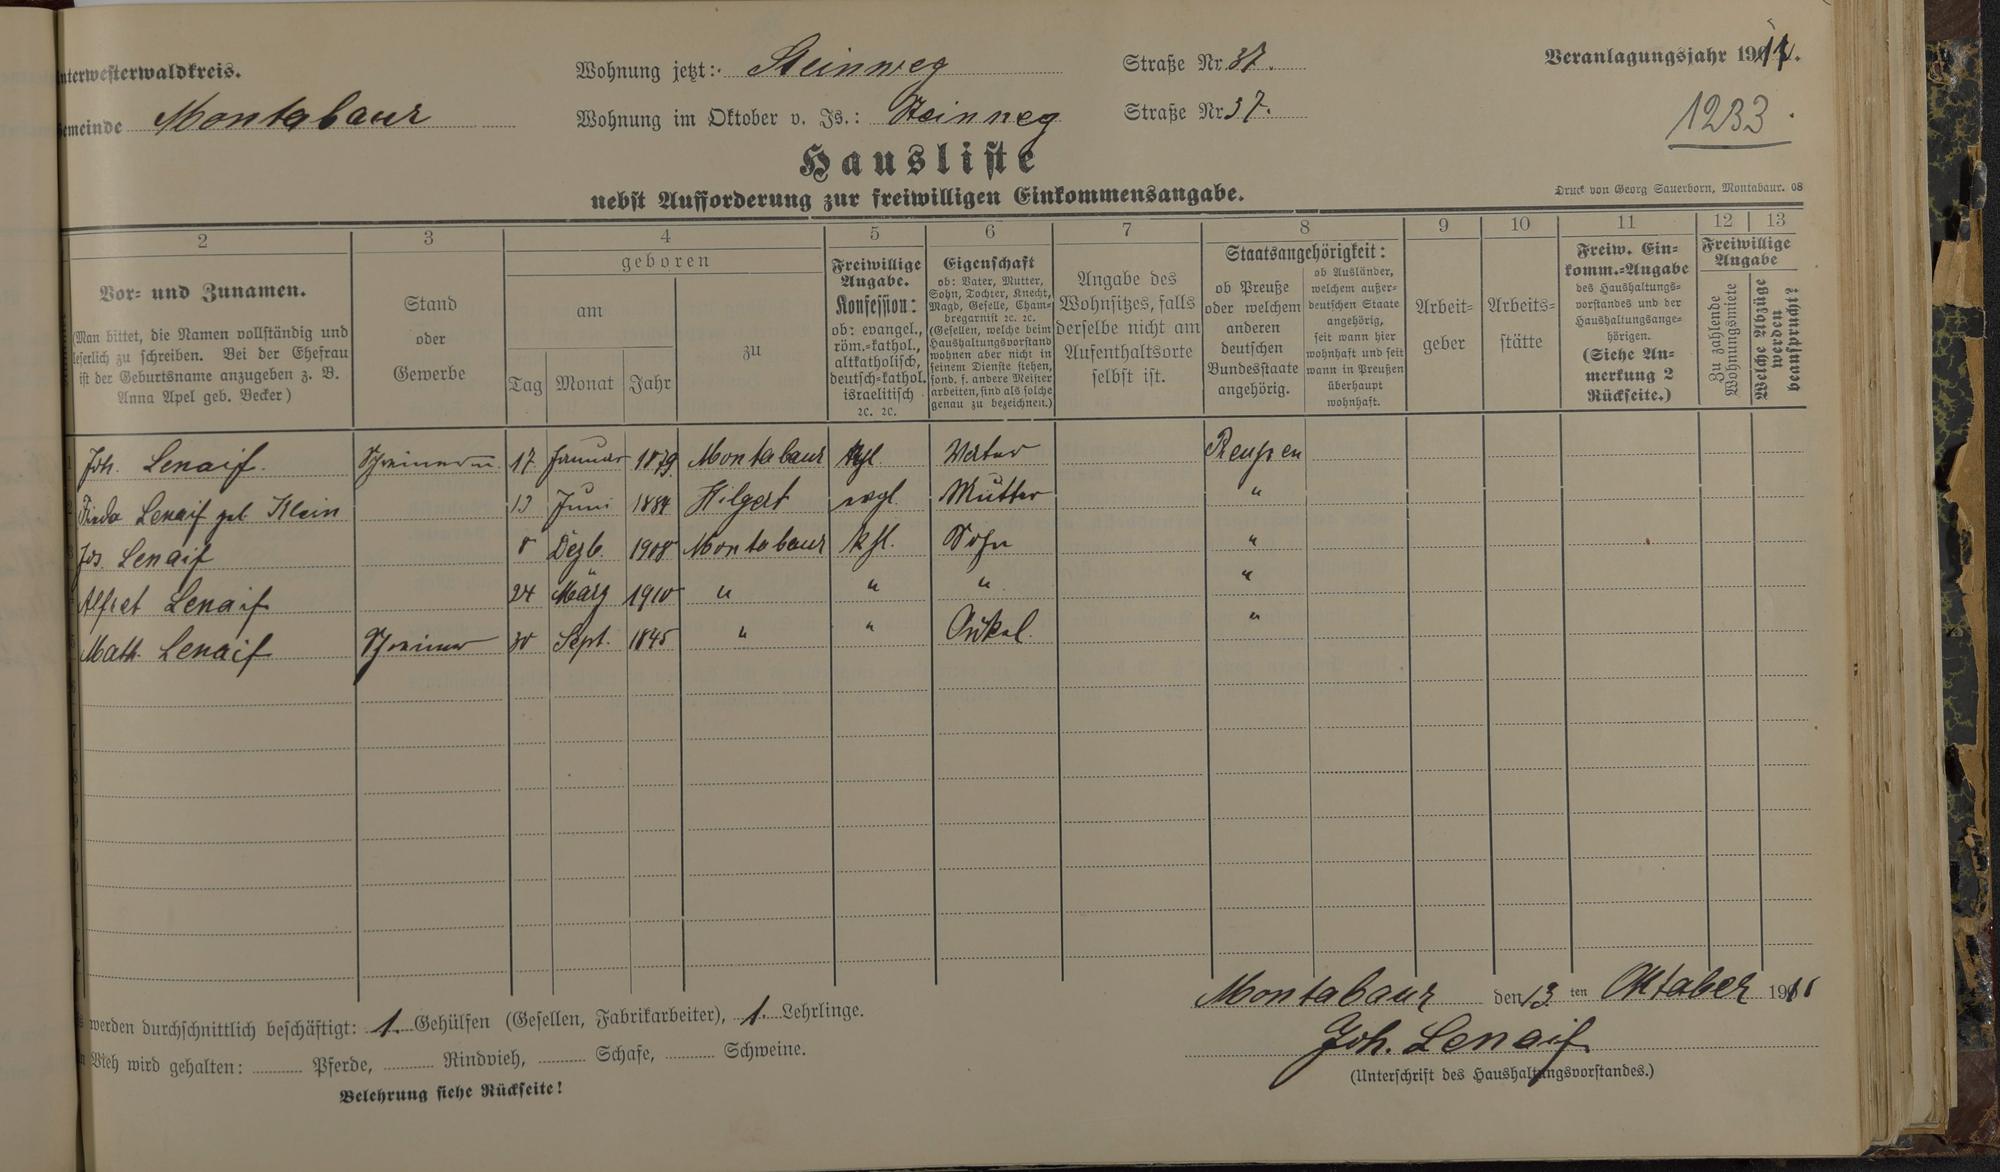 nterwesterwaldkreis.
Wohnung jetzt: Steinweg Straße Nr. 37.
Veranlagungsjahr 1912.
emeinde Montabaur
Wohnung im Oktober v. Js.: Steinweg Straße Nr. 37.
1233.
Hausliste
nebst Aufforderung zur freiwilligen Einkommensangabe.
Druck von Georg Sauerborn, Montabaur. 08
2 3 4 5 6 7 8 9 10 11 12 13
Vor- und Zunamen.
(Man bittet, die Namen vollständig und
leserlich zu schreiben. Bei der Ehefrau
ist der Geburtsname anzugeben z. B.
Anna Apel geb. Becker)
Stand
oder
Gewerbe
geboren
am
Tag Monat Jahr
zu
Freiwillige
Angabe.
Konfession:
ob: evangel.,
röm.-kathol.,
altkatholisch,
deutsch-kathol.
israelitisch
ꝛc. ꝛc.
Eigenschaft
ob: Vater, Mutter,
Sohn, Tochter, Knecht,
Magd, Geselle, Cham-
bregarnist ꝛc. ꝛc.
(Gesellen, welche beim
Haushaltungsvorstand
wohnen aber nicht in
seinem Dienste stehen,
sond. f. andere Meister
arbeiten, sind als solche
genau zu bezeichnen.)
Angabe des
Wohnsitzes, falls
derselbe nicht am
Aufenthaltsorte
selbst ist.
Staatsangehörigkeit:
ob Preuße
oder welchem
anderen
deutschen
Bundesstaate
angehörig.
ob Ausländer,
welchem außer-
deutschen Staate
angehörig,
seit wann hier
wohnhaft und seit
wann in Preußen
überhaupt
wohnhaft.
Arbeit-
geber
Arbeits-
stätte
Freiw. Ein-
komm.-Angabe
des Haushaltungs-
vorstandes und der
Haushaltungsange-
hörigen.
(Siehe An-
merkung 2
Rückseite.)
Freiwillige
Angabe
Zu zahlende
Wohnungsmiete
Welche Abzüge
werden
beansprucht?
Joh. Lenaif. Schreinerm. 17 Januar 1879 Montabaur kthl Vater Preußen
Frieda Lenaif geb Klein 13 Juni 1884 Hilgert evgl. Mutter "
Jos. Lenaif 8 Dezb. 1908 Montabaur kthl. Sohn "
Alfret Lenaif 24 März 1910 " " " "
Math. Lenaif Schreiner 30 Sept. 1845 " " Onkel. "
Montabaur den 13 ten Oktober 1911
werden durchschnittlich beschäftigt: 1. Gehülfen (Gesellen, Fabrikarbeiter), 1. Lehrlinge.
Joh. Lenaif
Vieh wird gehalten: Pferde, Rindvieh, Schafe, Schweine.
(Unterschrift des Haushaltungsvorstandes.)
Belehrung siehe Rückseite!